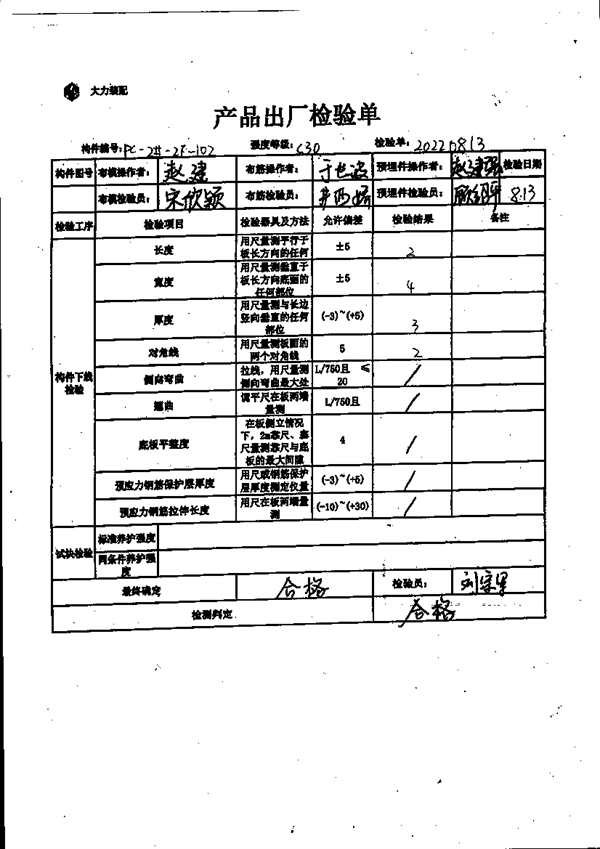 大力装配
产品出厂检验单
构件编号: PC-2#-2F-102 强度等级: C30 检验单: 20220813
构件图号 布模操作者: 赵建 布筋操作者: 预埋件操作者: 检验日期
布模检验员: 宋欣颖 布筋检验员: 预埋件检验员: 8.13
检验工序 检验项目 检验器具及方法 允许偏差 检验结果 备注
构件下线检验
长度 用尺量测平行于板长方向的任何 ±5 2
宽度 用尺量测垂直于板长方向底面的任何部位 ±5 4
厚度 用尺量测与长边竖向垂直的任何部位 (-3)~(+5) 3
对角线 用尺量测板面的两个对角线 5 2
侧向弯曲 拉线，用尺量测侧向弯曲最大处 L/750且 ≤20 /
翘曲 调平尺在板两端量测 L/750且 /
底板平整度 在板侧立情况下，2m靠尺、塞尺量测靠尺与底板的最大间隙 4 /
预应力钢筋保护层厚度 用尺或钢筋保护层厚度测定仪量 (-3)~(+5) /
预应力钢筋拉伸长度 用尺在板两端量测 (-10)~(+30) /
试块检验 标准养护强度
同条件养护强度
最终确定 合格 检验员:
检测判定 合格